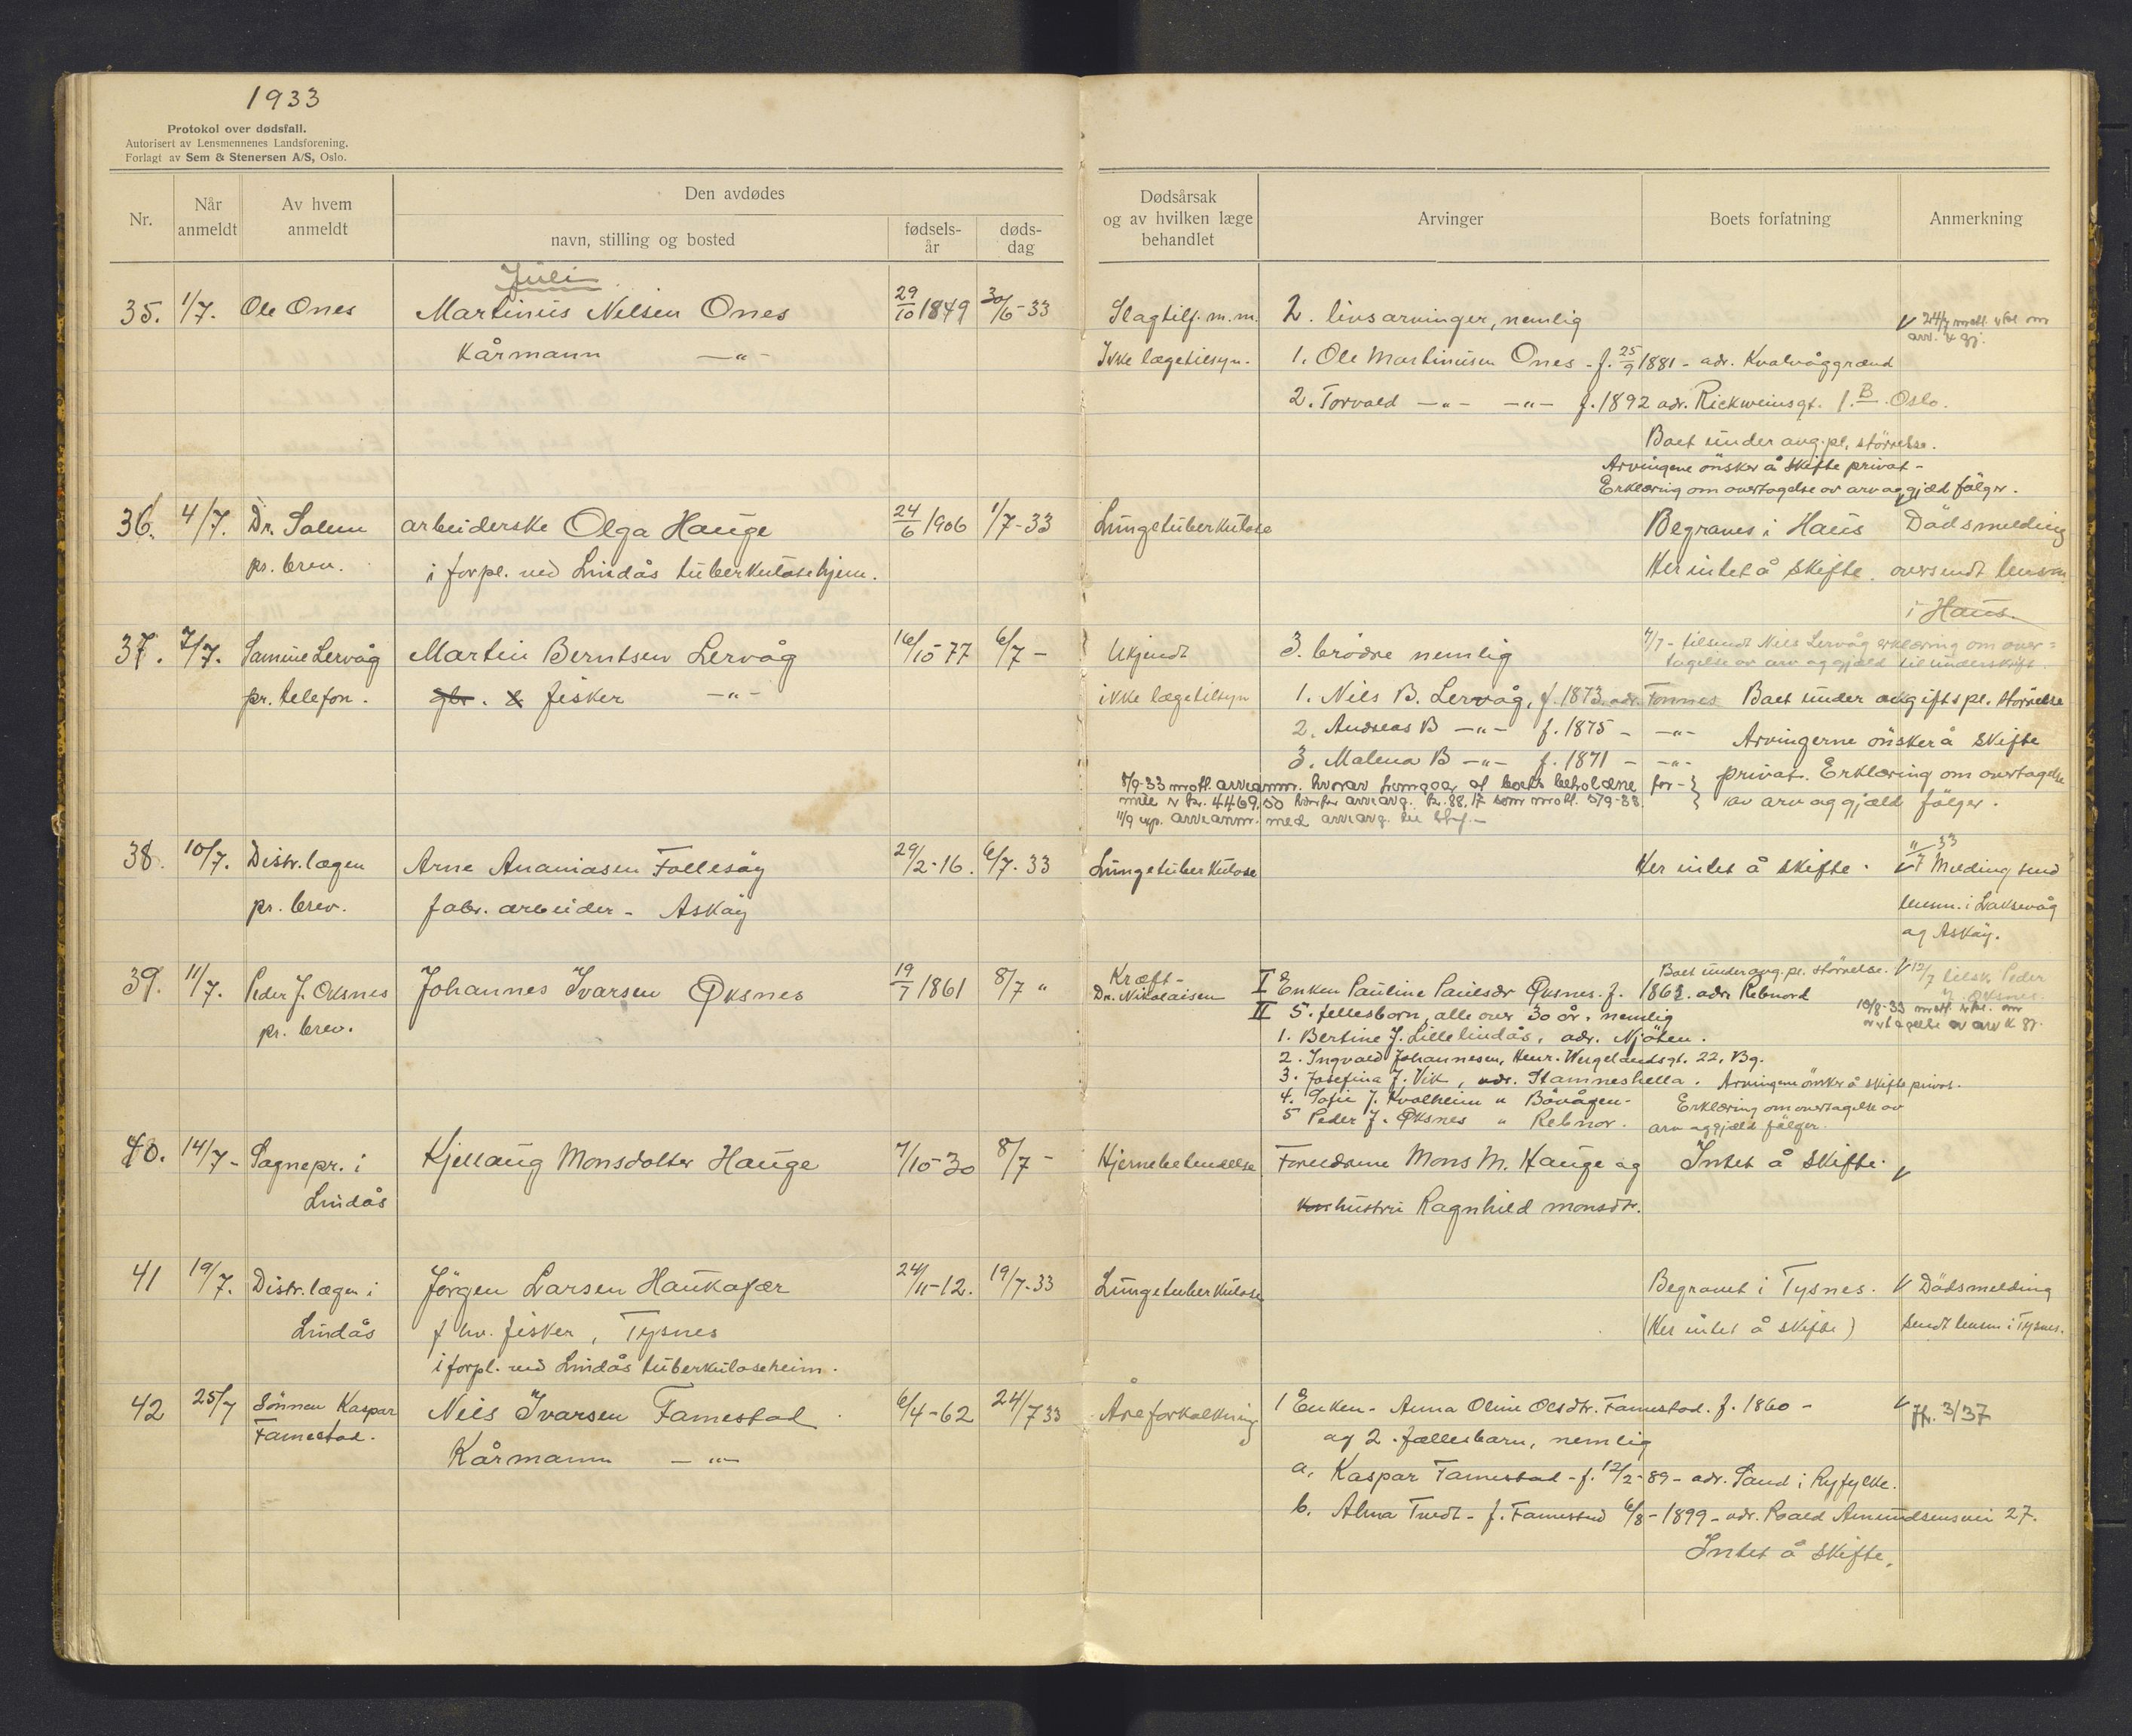 1933
Protokol over dødsfall.
Autorisert av Lensmennenes Landsforening.
Forlagt av Sem & Stenersen A/S, Oslo.
Nr.
Når anmeldt
Av hvem anmeldt
Den avdødes
navn, stilling og bosted
fødsels-år
døds-dag
Dødsårsak og av hvilken læge behandlet
Arvinger
Boets forfatning
Anmerkning
Juli
35. 1/7. Ole Ones Martinus Nilsen Ones 29/10 1849 30/6-33 Slagtilf. m.m. 2. livsarvinger, nemlig
Kårmann —"— Ikke lægetilsyn. 1. Ole Martinusen Ones - f. 25/9 1881 - adr. Kvalvåggrend
2. Torvald —"— —"— f. 1892 adr. Rickweinsgt. 1.B. Oslo.
Boet under avg.pl. størrelse.
Arvingene ønsker å skifte privat -
Erklæring om overtagelse av arv og gjæld følger.
36. 4/7. Dr. Solem arbeiderske Olga Hauge 24/6 1906 1/7-33 Lungetuberkulose Begraves i Haus Dødsmelding
pr. brev. i forpl. ved Lindås tuberkulosehjem. Her intet å skifte. oversendt lensm.
i Haus.
37. 7/7. Samue Lervåg Martin Berntsen Lervåg 16/10 77 6/7 - Ukjendt 3. brødre nemlig 7/7 - tilsendt Nils Lervåg erklæring om over-
tagelse av arv og gjæld til underskrift.
pr. telefon. gbr. & fisker —"— ikke lægetilsyn 1. Nils B. Lervåg, f. 1873. adr. Fonnes Boet under avgiftspl. størrelse
2. Andreas B —"— f. 1875 - —"— Arvingerne ønsker å skifte
3. Malena B —"— f. 1871 - —"— privat. Erklæring om overtagelse
av arv og gjæld følger.
5/9-33 mott. arveanm. hvorav fremgaar at boets beholdne for-
mue er kr. 4469,50 hvorfor arveavg. kr. 88,17 som mott. 5/9-33.
11/9 exp. arveanm. med arveavg. til
38. 10/7. Distr.lægen Arne Ananiasen Follesøy 29/2-16. 6/7-33 Lungetuberkulose Her intet å skifte. 11/7 33 Melding send
pr. brev. fabr. arbeider - Askøy lensm. i Laksevåg
og Askøy.
39. 11/7. Peder J. Oksnes Johannes Ivarsen Øksnes 19/7 1861 8/7 " Kræft - Boet under avg.pl. størrelse. 12/7 tilsk. Peder
J. Øksnes.
pr. brev. Dr. Nikolaisen I Enken Pauline Paulsdr Øksnes. f. 1862. adr. Rebnord
II 5. fellesborn, alle over 30 år. nemlig 10/8-33 mott. erkl. om
overtagelse av arv & gj.
1. Bertine J. Lillelindås, adr. Njøten.
2. Ingvald Johannesen, Henr. Wergelandsgt. 22, Bg.
3. Josefina J. Vik, adr. Stamneshella. Arvingene ønsker å skifte privat.
4. Sofie J. Kvalheim " Bøvågen - Erklæring om overtagelse av
5 Peder J. Øksnes " Rebnor. arv og gjæld følger.
40. 14/7- Sognepr. i Kjellaug Monsdotter Hauge 7/10-30 8/7 - Hjernebetendelse Foreldrene Mons M. Hauge og Intet å skifte.
Lindås hustru Ragnhild Monsdtr.
41 19/7. Distr.lægen i Jørgen Larsen Haukafær 24/11-12. 19/7-33 Lungetuberkulose Begravet i Tysnes. Dødsmelding
Lindås f hv. fisker, Tysnes (Her intet å skifte) sendt lensm i Tysnes.
i forpl. ved Lindås tuberkuloseheim.
42 25/7 Sønnen Kaspar Nils Ivarsen Famestad 6/4-62 24/7 33 Åreforkalkning 1 Enken - Anna Oline Olsdtr. Famestad. f. 1860 - Jfr. 3/37
Famestad. Kårmann —"— og 2. fællesbarn, nemlig
a. Kaspar Famestad - f. 12/2-89 - adr. Sand i Ryfylke.
b. Alma Tvedt - f. Famestad 6/8-1899 - adr. Roald Amundsensvei 27.
Intet å skifte.